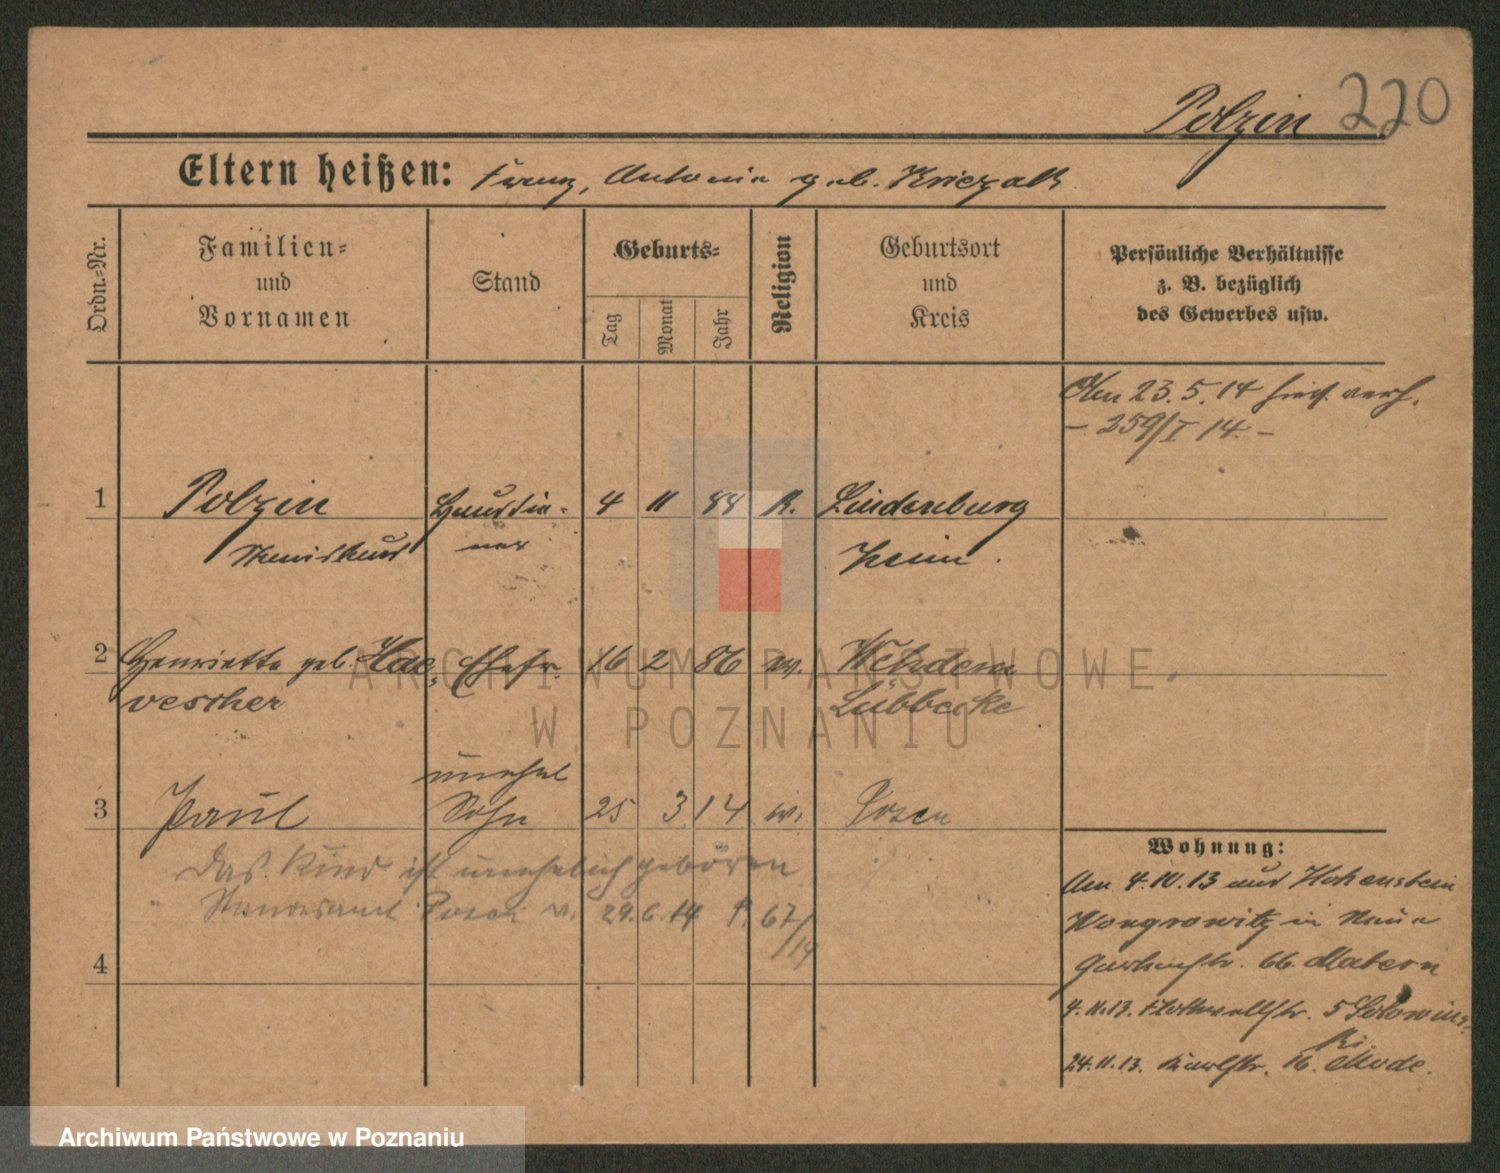 Polzin 220
Eltern heißen: Franz, Antonie geb.
Ordn.-Nr.
Familien-
und
Vornamen
Stand
Geburts-
Tag
Monat
Jahr
Religion
Geburtsort
und
Kreis
Persönliche Verhältnisse
z. B. bezüglich
des Gewerbes usw.
Am 23.5.14 hier verh.
- 259/I 14. -
1 Polzin Hausdie- 4 11 88 K. Lindenburg
Stanislaus ner Znin.
2 Henriette geb. Hae- Ehefr. 16 2 86 ev. Wehdem
vescher Lübbecke
unehel
3 Paul Sohn 25 3 14 ev. Posen
Das Kind ist unehelich geboren
Standesamt Posen v. 29.6.14 P. 67/14
4
Wohnung:
Am 4.10.13 aus Hohenstein
Wongrowitz in Neue
Gartenstr. 66. Matern
4.11.13. Flottwellstr. 5 Solowins-
ki.
24.11.13. Karlstr. 16. Mode.
ARCHIWUM PAŃSTWOWE
W POZNANIU
Archiwum Państwowe w Poznaniu